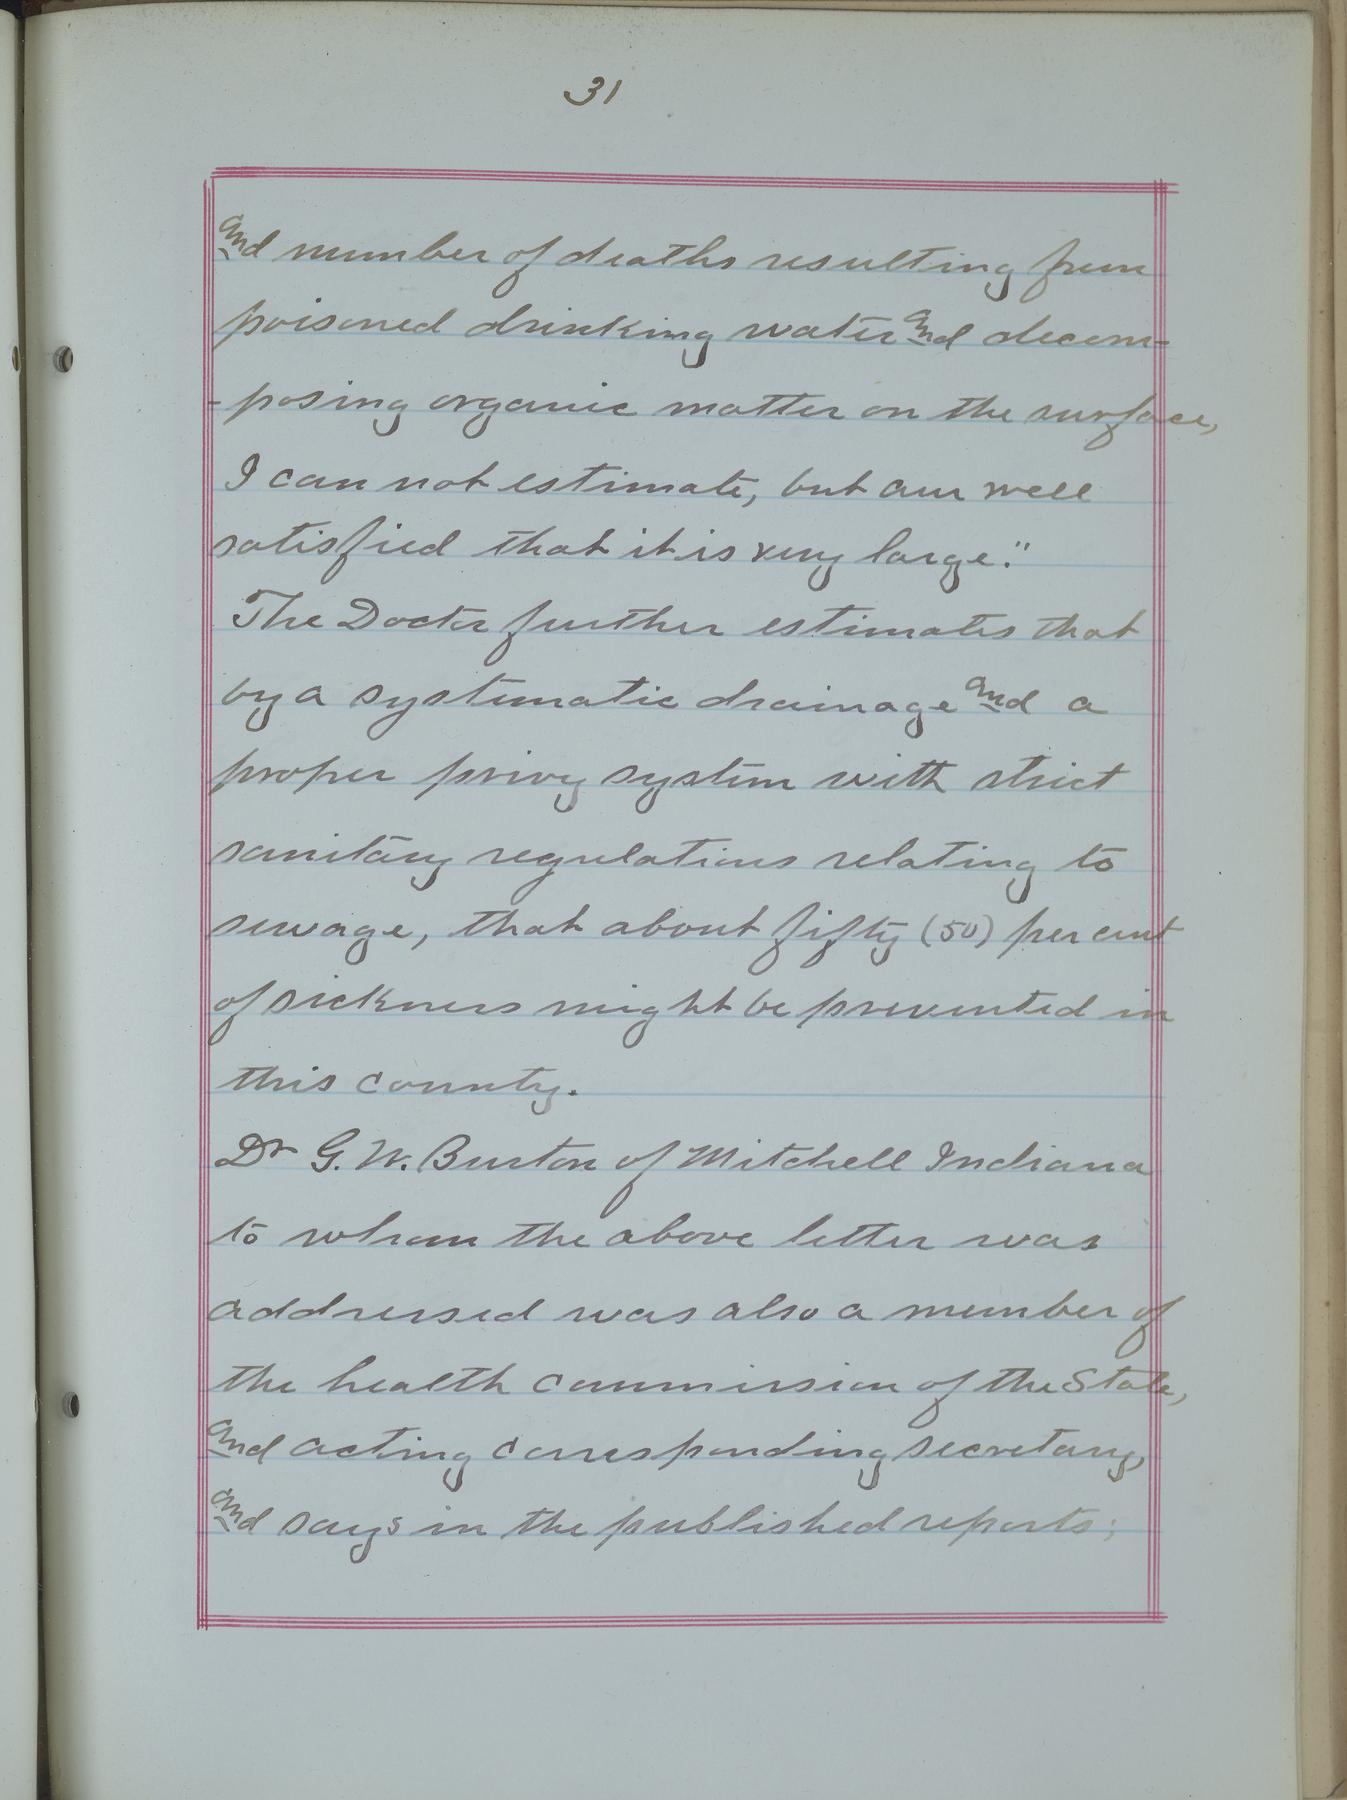 31
and number of deaths resulting from
poisoned drinking water and decom-
-posing organic matter on the surface,
I can not estimate, but am well
satisfied that it is very large."
The Doctor further estimates that
by a systematic drainage and a
proper privy system with strict
sanitary regulations relating to
sewage, that about fifty (50) per cent
of sickness might be prevented in
this county.
Dr G. W. Burton of Mitchell Indiana
to whom the above letter was
addressed was also a member of
the health commission of the State,
and acting corresponding secretary,
and says in the published reports;